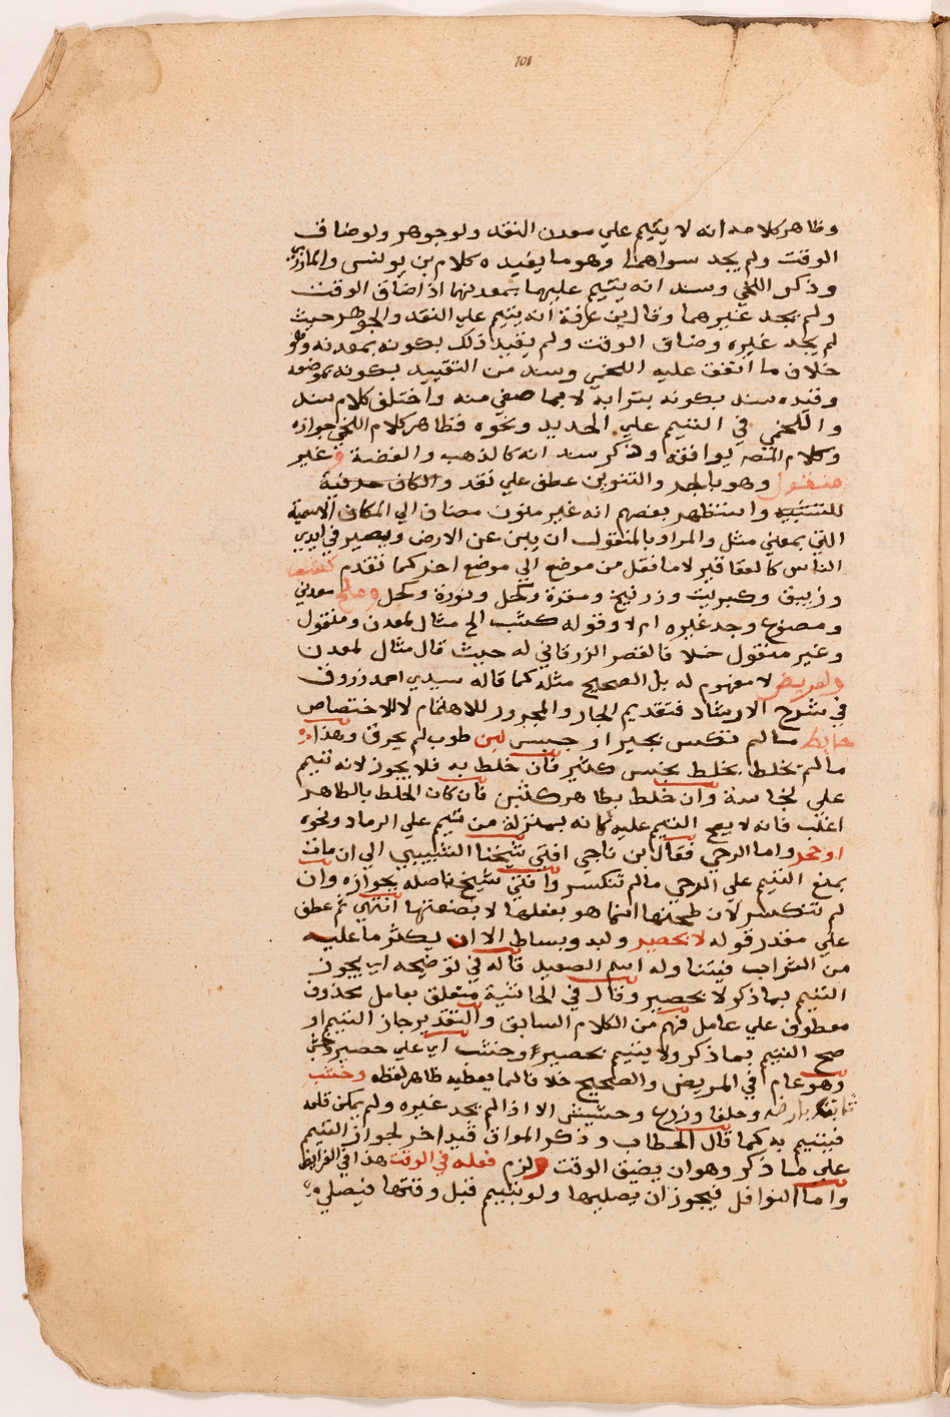 101
وظاهر كلامه انه لا يتيم علي معدن النقد ولو جوهر ولو ضاق
الوقت ولم يجد سواهما وهو ما يفيده كلام بن يونس والمازري
وذكر اللخمي وسند انه يتيم عليها بمعدنها اذا ضاق الوقت
ولم يجد غيرهما وقال بن عرفة انه يتيم علي النقد والجوهر حيث
لم يجد غيره وضاق الوقت ولم يقيد ذلك بكونه بمعدنه وهو
خلاف ما اتفق عليه اللخمي وسند من التقييد بكونه بموضعه
وقيده سند بكونه بترابه لا بما صفي منه واختلف كلام سند
واللخمي في التيم علي الحديد ونحوه فظاهر كلام اللخمي جوازه
وكلام المصـ يوافقه وذكر سند انه كالذهب والفضة وغير
منقول وهو بالجر والتنوين عطف علي نقد والكاف حرفية
للتشبيه واستظهر بعضهم انه غير منون مضاف الي المكان الاسمية
التي بمعني مثل والمراد بالمنقول ان يبين عن الارض ويصير في ايدي
الناس كالعقاقير لا ما نقل من موضع الي موضع اخر كما تقدم كشب
وزيبق وكبريت وزرنيخ ومغرة وكحل ونورة وكحل وملح معدني
ومصنوع وجد غيره ام لا وقوله كشب الخ مثال لمعدن ومنقول
وغير منقول خلافا لقصر الزرقاني له حيث قال مثال لمعدن
ولمريض لا مفهوم له بل الصحيح مثله كما قاله سيدي احمد زروق
في شرح الارشاد فتقديم الجار والمجرور للاهتمام لا للاختصاص
حايط ما لم تكس بجير او جبس لبن طوب لم يحرق وهذا
ما لم يخلط بخلط بنجس كثير فان خلط به فلا يجوز لانه تيم
علي نجاسة وان خلط بطاهر كتبن فان كان الخلط بالطاهر
اغلب فانه لا يصح التيم عليه كانه بمنزلة من تيم علي الرماد ونحوه
او حجر واما الرحي فقال بن ناجي افتي شيخنا الشبيبي الي ان مات
بمنع التيم علي الرحي ما لم تنكسر وافتي شيخنا صله بجوازه وان
لم تنكسر لان طحنها انما هو بفعلها لا بصنعتها انتهي ثم عطف
علي مقدر قوله لا بحصير ولبد وبساط الا ان يكثر ما عليه
من التراب فيتناوله اسم الصعيد قاله في توضيحه اي يجوز
التيم بما ذكر لا بحصير وقال في الحاشية متعلق بعامل محذوف
معطوف علي عامل فهم من الكلام السابق والتقدير جاز التيم او
صح التيم بما ذكر ولا يتيم بحصير وخشب اي علي حصير وخشب
وهو عام في المريض والصحيح خلافا لما يعطيه ظاهر لفظه وخشب
بارض وحلفا وزرع وحشيش الا اذا لم يجد غيره ولم يمكن قلعه
فيتيم به كما قال الحطاب وذكر المواق قيدا اخر لجواز التيم
علي ما ذكر وهو ان يضيق الوقت ولزم فعله في الوقت هذا في الفرايض
واما النوافل فيجوز ان يصليها ولو بتيم قبل وقتها فيصلي